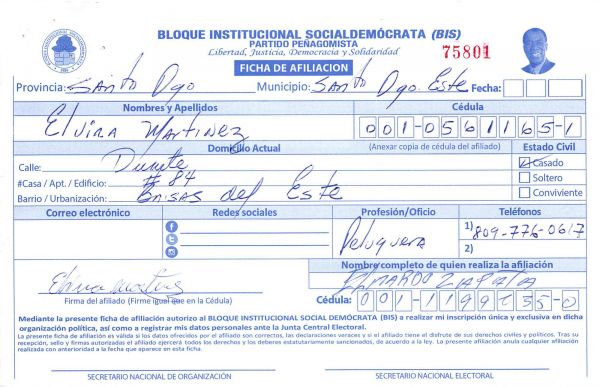 BLOQUE INSTITUCIONAL SOCIALDEMÓCRATA (BIS)
PARTIDO PEÑAGOMISTA
Libertad, Justicia, Democracia y Solidaridad
75801
FICHA DE AFILIACION
Provincia: Santo Dgo Municipio: Santo Dgo. Este Fecha:
Nombres y Apellidos Cédula
Elvira Martinez 001-0561165-1
Domicilio Actual (Anexar copia de cédula del afiliado) Estado Civil
Calle: Duarte Casado
#Casa / Apt. / Edificio: # 84 Soltero
Barrio / Urbanización: Brisas del Este Conviviente
Correo electrónico Redes sociales Profesión/Oficio Teléfonos
Peluquera 1) 809-776-0617
2)
Nombre completo de quien realiza la afiliación
Elvira Martines
Firma del afiliado (Firme igual que en la Cédula) Cédula:
Mediante la presente ficha de afiliación autorizo al BLOQUE INSTITUCIONAL SOCIAL DEMÓCRATA (BIS) a realizar mi inscripción única y exclusiva en dicha
organización política, así como a registrar mis datos personales ante la Junta Central Electoral.
La presente ficha de afiliación es válida si los datos ofrecidos por el afiliado son correctos, las declaraciones veraces y si el afiliado tiene el disfrute de sus derechos civiles y políticos. Tras su
recepción, sello y firmas autorizadas el afiliado ejercerá todos los derechos y los deberes estatutariamente sancionados, de acuerdo a la ley. La presente afiliación anula cualquier afiliación
realizada con anterioridad a la fecha que aparece en esta ficha.
SECRETARIO NACIONAL DE ORGANIZACIÓN SECRETARIO NACIONAL ELECTORAL